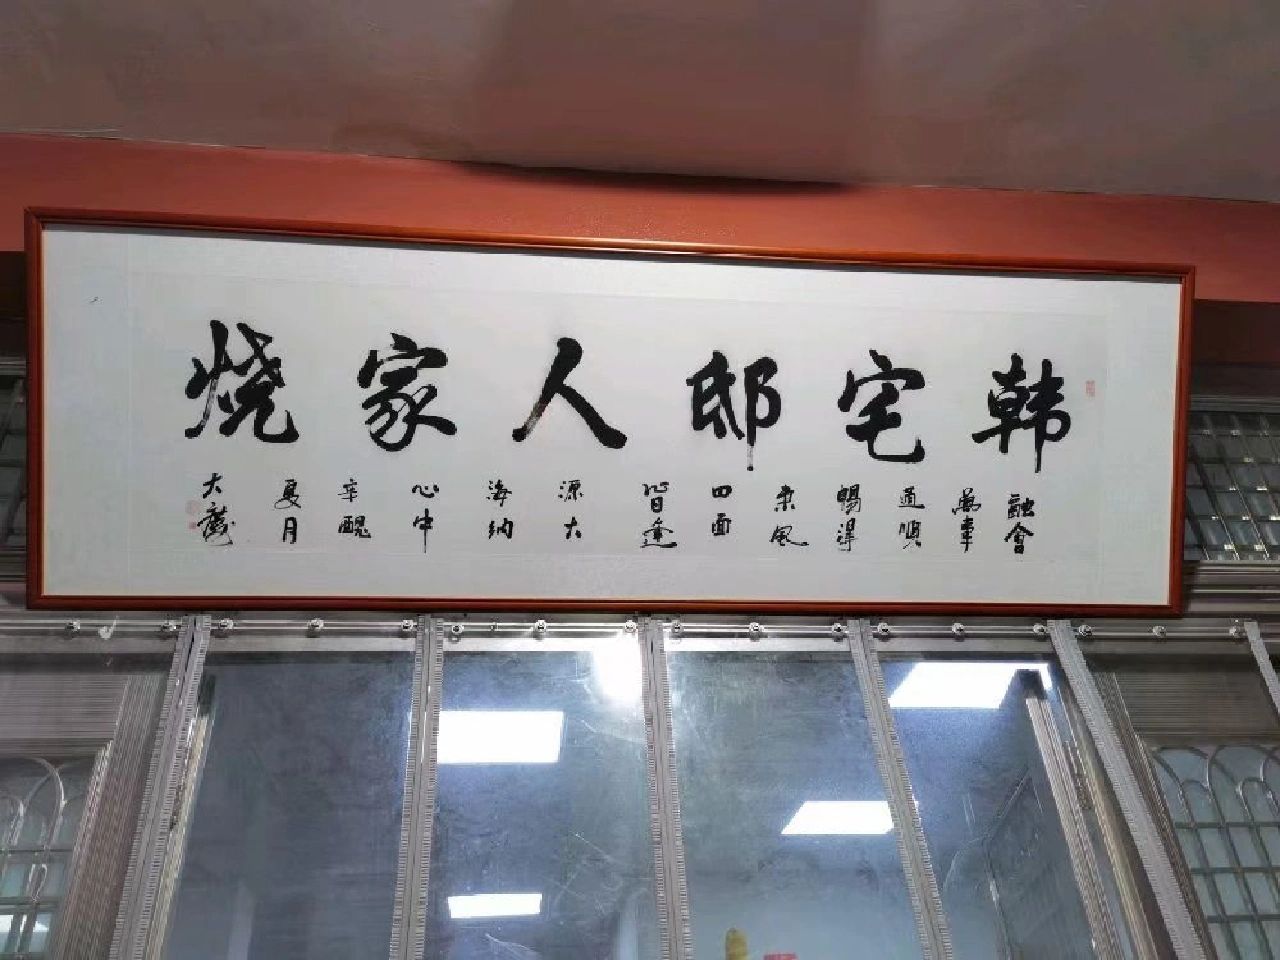 韩宅邸人家烧
融會萬事通順暢得東風四面皆逢源大海納心中
辛醜夏月大龍